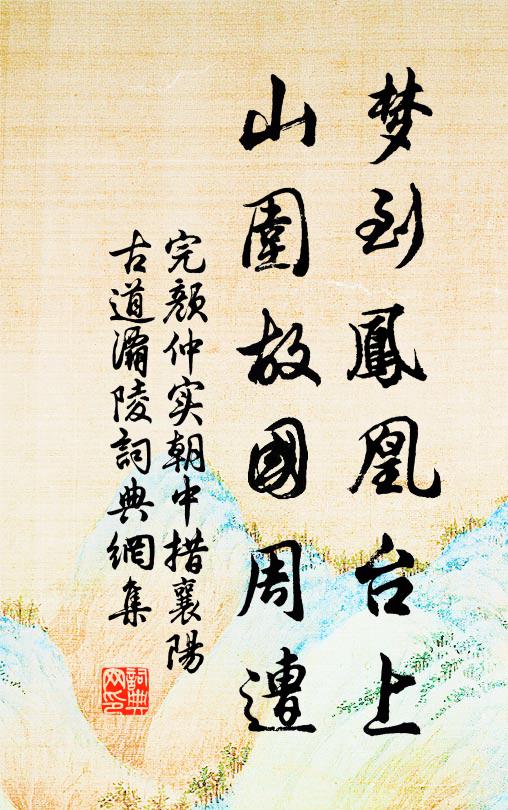 梦到鳳凰台上
山圍故國周遭
完顏仲实朝中措襄陽
古道灞陵詞典網集
詞典网印